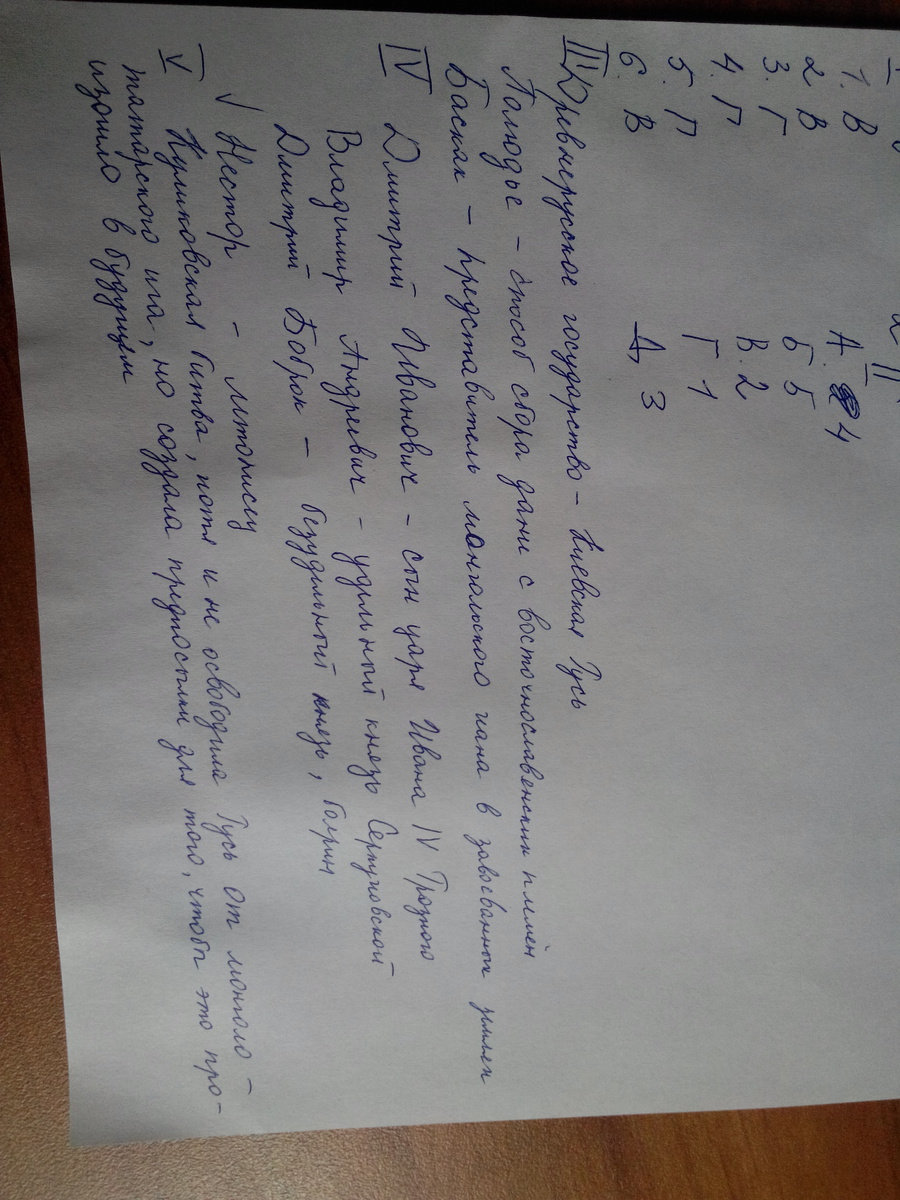 I
1. В
2. В
3. Г
4. Г
5. Г
6. В
II
А. 4
Б 5
В. 2
Г 1
Д, 3
III Древнерусское государство - Киевская Русь
Полюдье - способ сбора дани с восточнославянских племён
Баскак - представитель монгольского хана в завоёванных землях
IV Дмитрий Иванович - сын царя Ивана IV Грозного
Владимир Андреевич - удельный князь Серпуховской
Дмитрий Боброк - безудельный князь, боярин
√ Нестор - летописец
V Куликовская битва, хотя и не освободила Русь от монголо-
татарского ига, но создала предпосылки для того, чтобы это про-
изошло в будущем